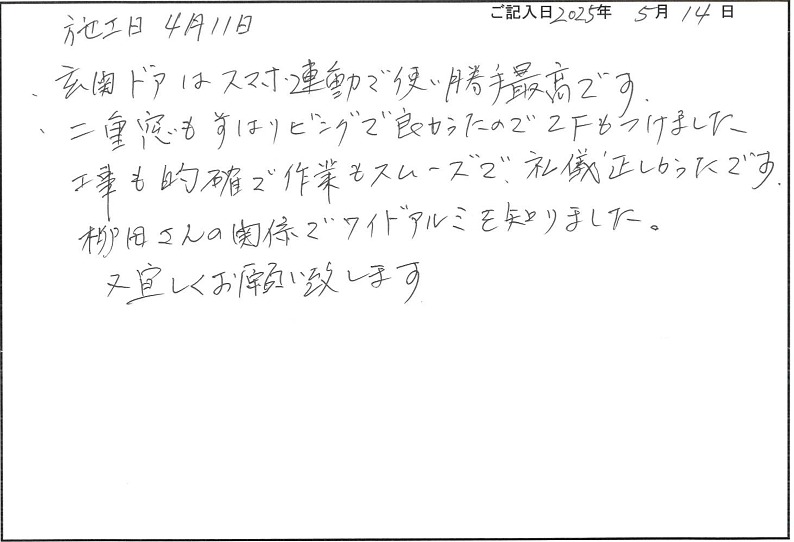 ご記入日2025年 5月 14日
施工日 4月11日
・玄関ドアはスマホ連動で使い勝手最高です.
・二重窓もまずはリビングで良かったので2Fもつけました
工事も的確で作業もスムーズで、礼儀正しかったです.
柳田さんの関係でワイドアルミを知りました。
又宜しくお願い致します